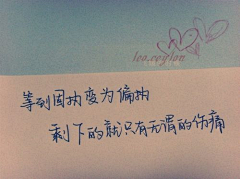 等到固执变为偏执
剩下的就只有无谓的伤痛